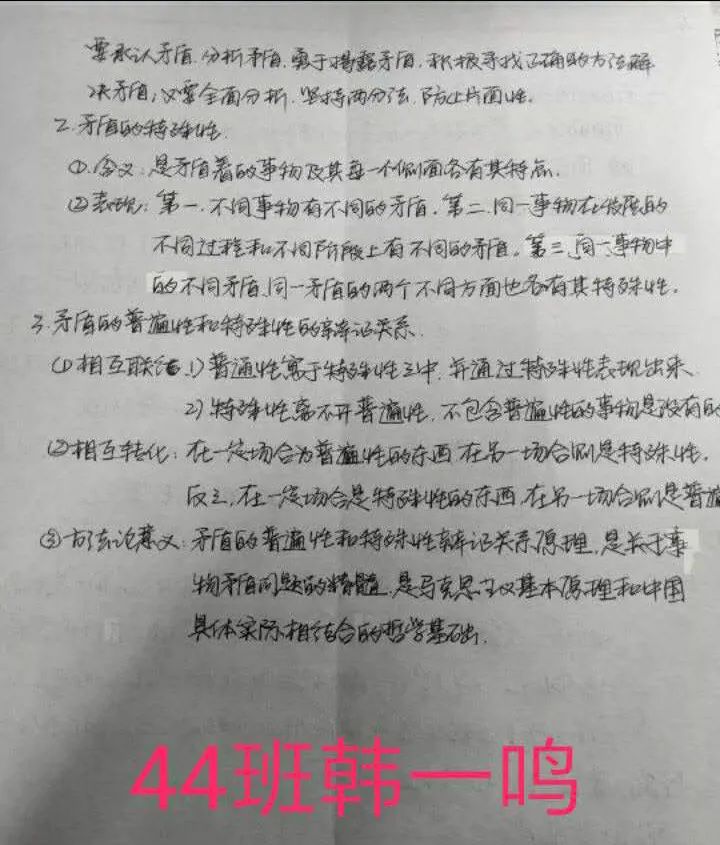 要承认矛盾,分析矛盾,勇于揭露矛盾,积极寻找正确的方法解
决矛盾;又要全面分析,坚持两分法,防止片面性.
2.矛盾的特殊性.
①.含义:是矛盾着的事物及其每一个侧面各有其特点.
②表现:第一.不同事物有不同的矛盾.第二.同一事物在发展的
不同过程和不同阶段上有不同的矛盾。第三.同一事物中
的不同矛盾,同一矛盾的两个不同方面也各有其特殊性.
3.矛盾的普遍性和特殊性的辩证关系.
①相互联结.1)普遍性寓于特殊性之中,并通过特殊性表现出来.
2)特殊性离不开普遍性.不包含普遍性的事物是没有的
②相互转化:在一定场合为普遍性的东西,在另一场合则是特殊性.
反之,在一定场合是特殊性的东西,在另一场合则是普遍
③方法论意义:矛盾的普遍性和特殊性辩证关系原理,是关于事
物矛盾问题的精髓,是马克思主义基本原理和中国
具体实际相结合的哲学基础.
44班韩一鸣